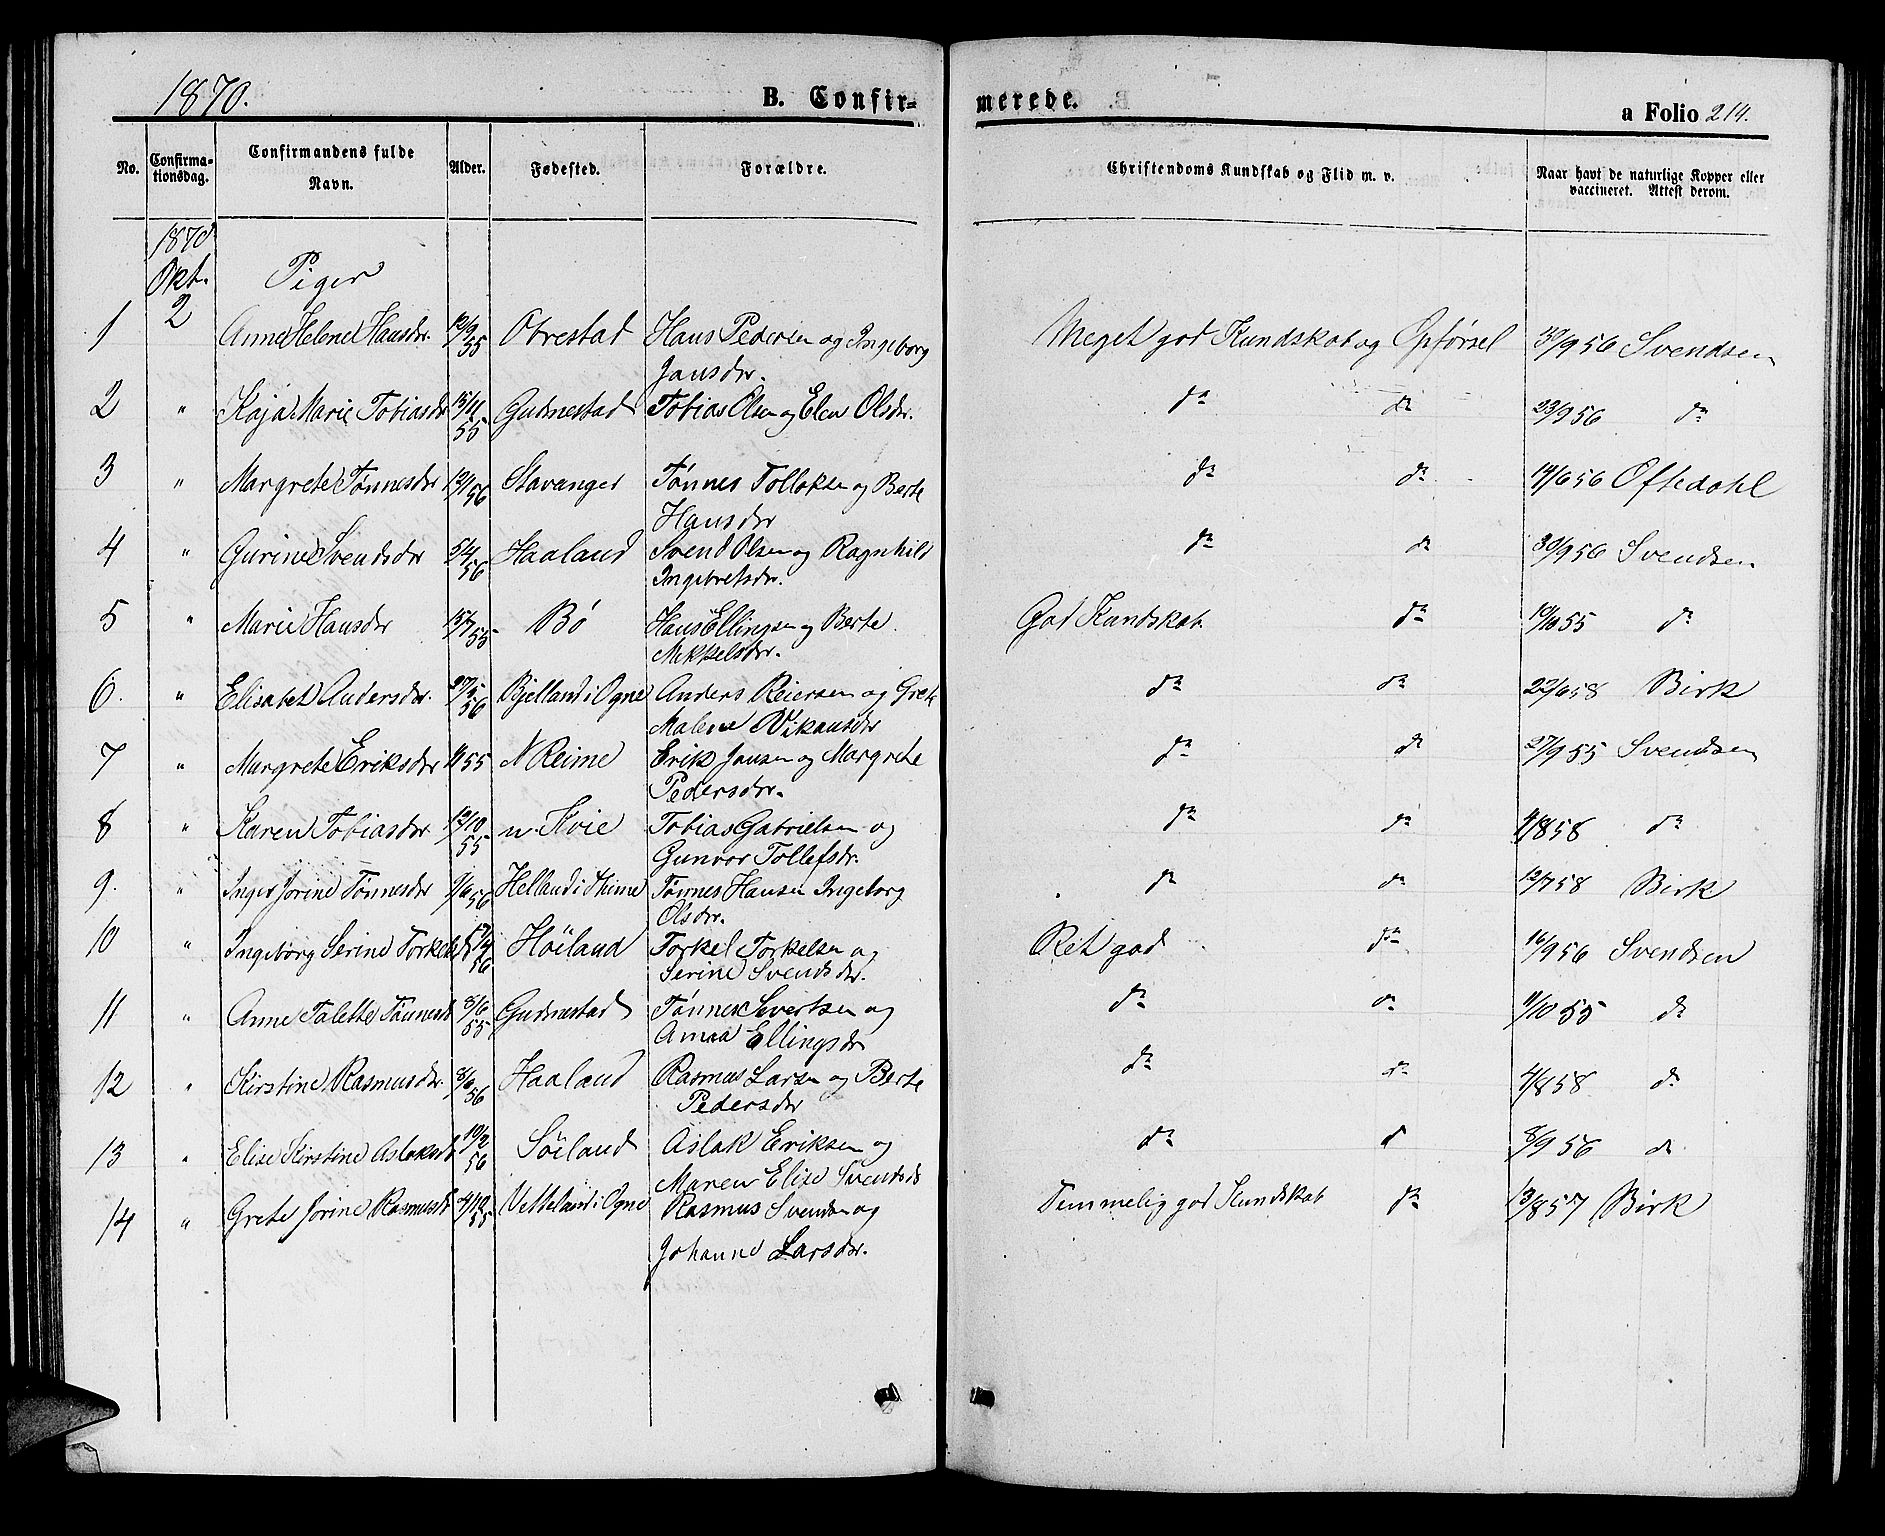 1870.
B. Confir=
merede.
a Folio 214.
No.
Confirma=
tionsdag.
Confirmandens fulde
Navn.
Alder.
Fødested.
Forældre.
Christendoms Kundskab og Flid m. v.
Naar havt de naturlige Kopper eller
vaccineret. Attest derom.
1870
Okt.
2
Piger
1 Anne Helene Hansdr. 12/9 55 Obrestad Hans Pedersen og Ingeborg Meget god Kundskab og Opførsel 30/9 56 Svendsen
Jansdr.
2 " Kaja Marie Tobiasdr 15/11 55 Gudmestad Tobias Olsen og Elen Olsdr. do do 23/9 56 do
3 " Margrete Tønnesdr 12/1 56 Stavanger Tønnes Tolloksen og Berte do do 14/6 56 Oftedahl
Hansdr
4 " Gurine Svendsdr 5/4 56 Haaland Svend Olsen og Ragnhild do do 30/9 56 Svendsen
Ingebretsdr.
5 " Marie Hansdr 15/7 55 Bø Hans Ellingsen og Berte God Kundskab do 19/10 55 do
Mikkelsdr.
6. " Elisabet Andersdr. 27/5 56 Bjelland i Ogne Anders Reiersen og Grete do do 22/6 58 Birk
Malene Vikansdr
7 " Margrete Eriksdr 55 N Reime Erik Jansen og Margrete do do 27/9 55 Svendsen
Pedersdr.
8 " Karen Tobiasdr 12/10 55 n. Kvie Tobias Gabrielsen og do do 4/8 58 do
Gunvor Tollefsdr.
9. " Inger Jorine Tønnesdr 9/6 56 Helland i Thime Tønnes Hansen Ingeborg do do 12/7 58 Birk
Olsdr.
10 " Ingeborg Serine Torkelsd 17/4 56 Høiland Torkel Torkelsen og Ret god do 16/9 56 Svendsen
Serine Svendsdr.
11 " Anne Talette Tønnesd 8/6 55 Gudmestad Tønnes Sivertsen og do do 11/10 55 do
Amaa Ellingsdr
12 " Kirstine Rasmusdr. 8/6 56 Haaland Rasmus Larsen og Berte do do 4/8 58 do
Pedersdr
13 " Elise Kirstine Aslaksd 19/2 56 Søiland Aslak Eriksen og do d 8/9 56 do
Maren Elise Svendsd
14 " Grete Jorine Rasmusdr 4/12 55 Vetteland i Ogne Rasmus Svendsen og Temmelig god Kundskab do 13/8 57 Birk
Johanne Larsdr.